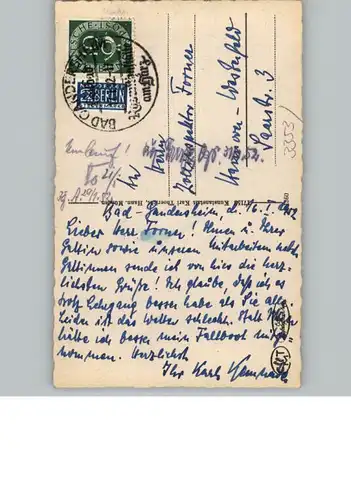 BAD GANDERSHEIM
DEUTSCHE BUNDESPOST
10
2 BERLIN
NOTOPFER
Herrn
Zollinspektor Forner
Hannover-Westerfeld
Saarstr. 3
3353/
Umlauf!
Kunstanstalt Karl Thoericht, Hann. Münden
Bad-Gandersheim, d. 16. I. 1952
Lieber Herr Forner! Ihnen u. Ihrer
Gattin sowie unseren Mitarbeitern nebst
Gattinnen sende ich von hier die herz-
lichsten Grüße! Ich glaube, daß ich es
trotz Lehrgang besser habe als Sie alle.
Leider ist das Wetter schlecht. Statt
hätte ich besser mein Faltboot mitge-
nommen. Herzlichst
Ihr Karl